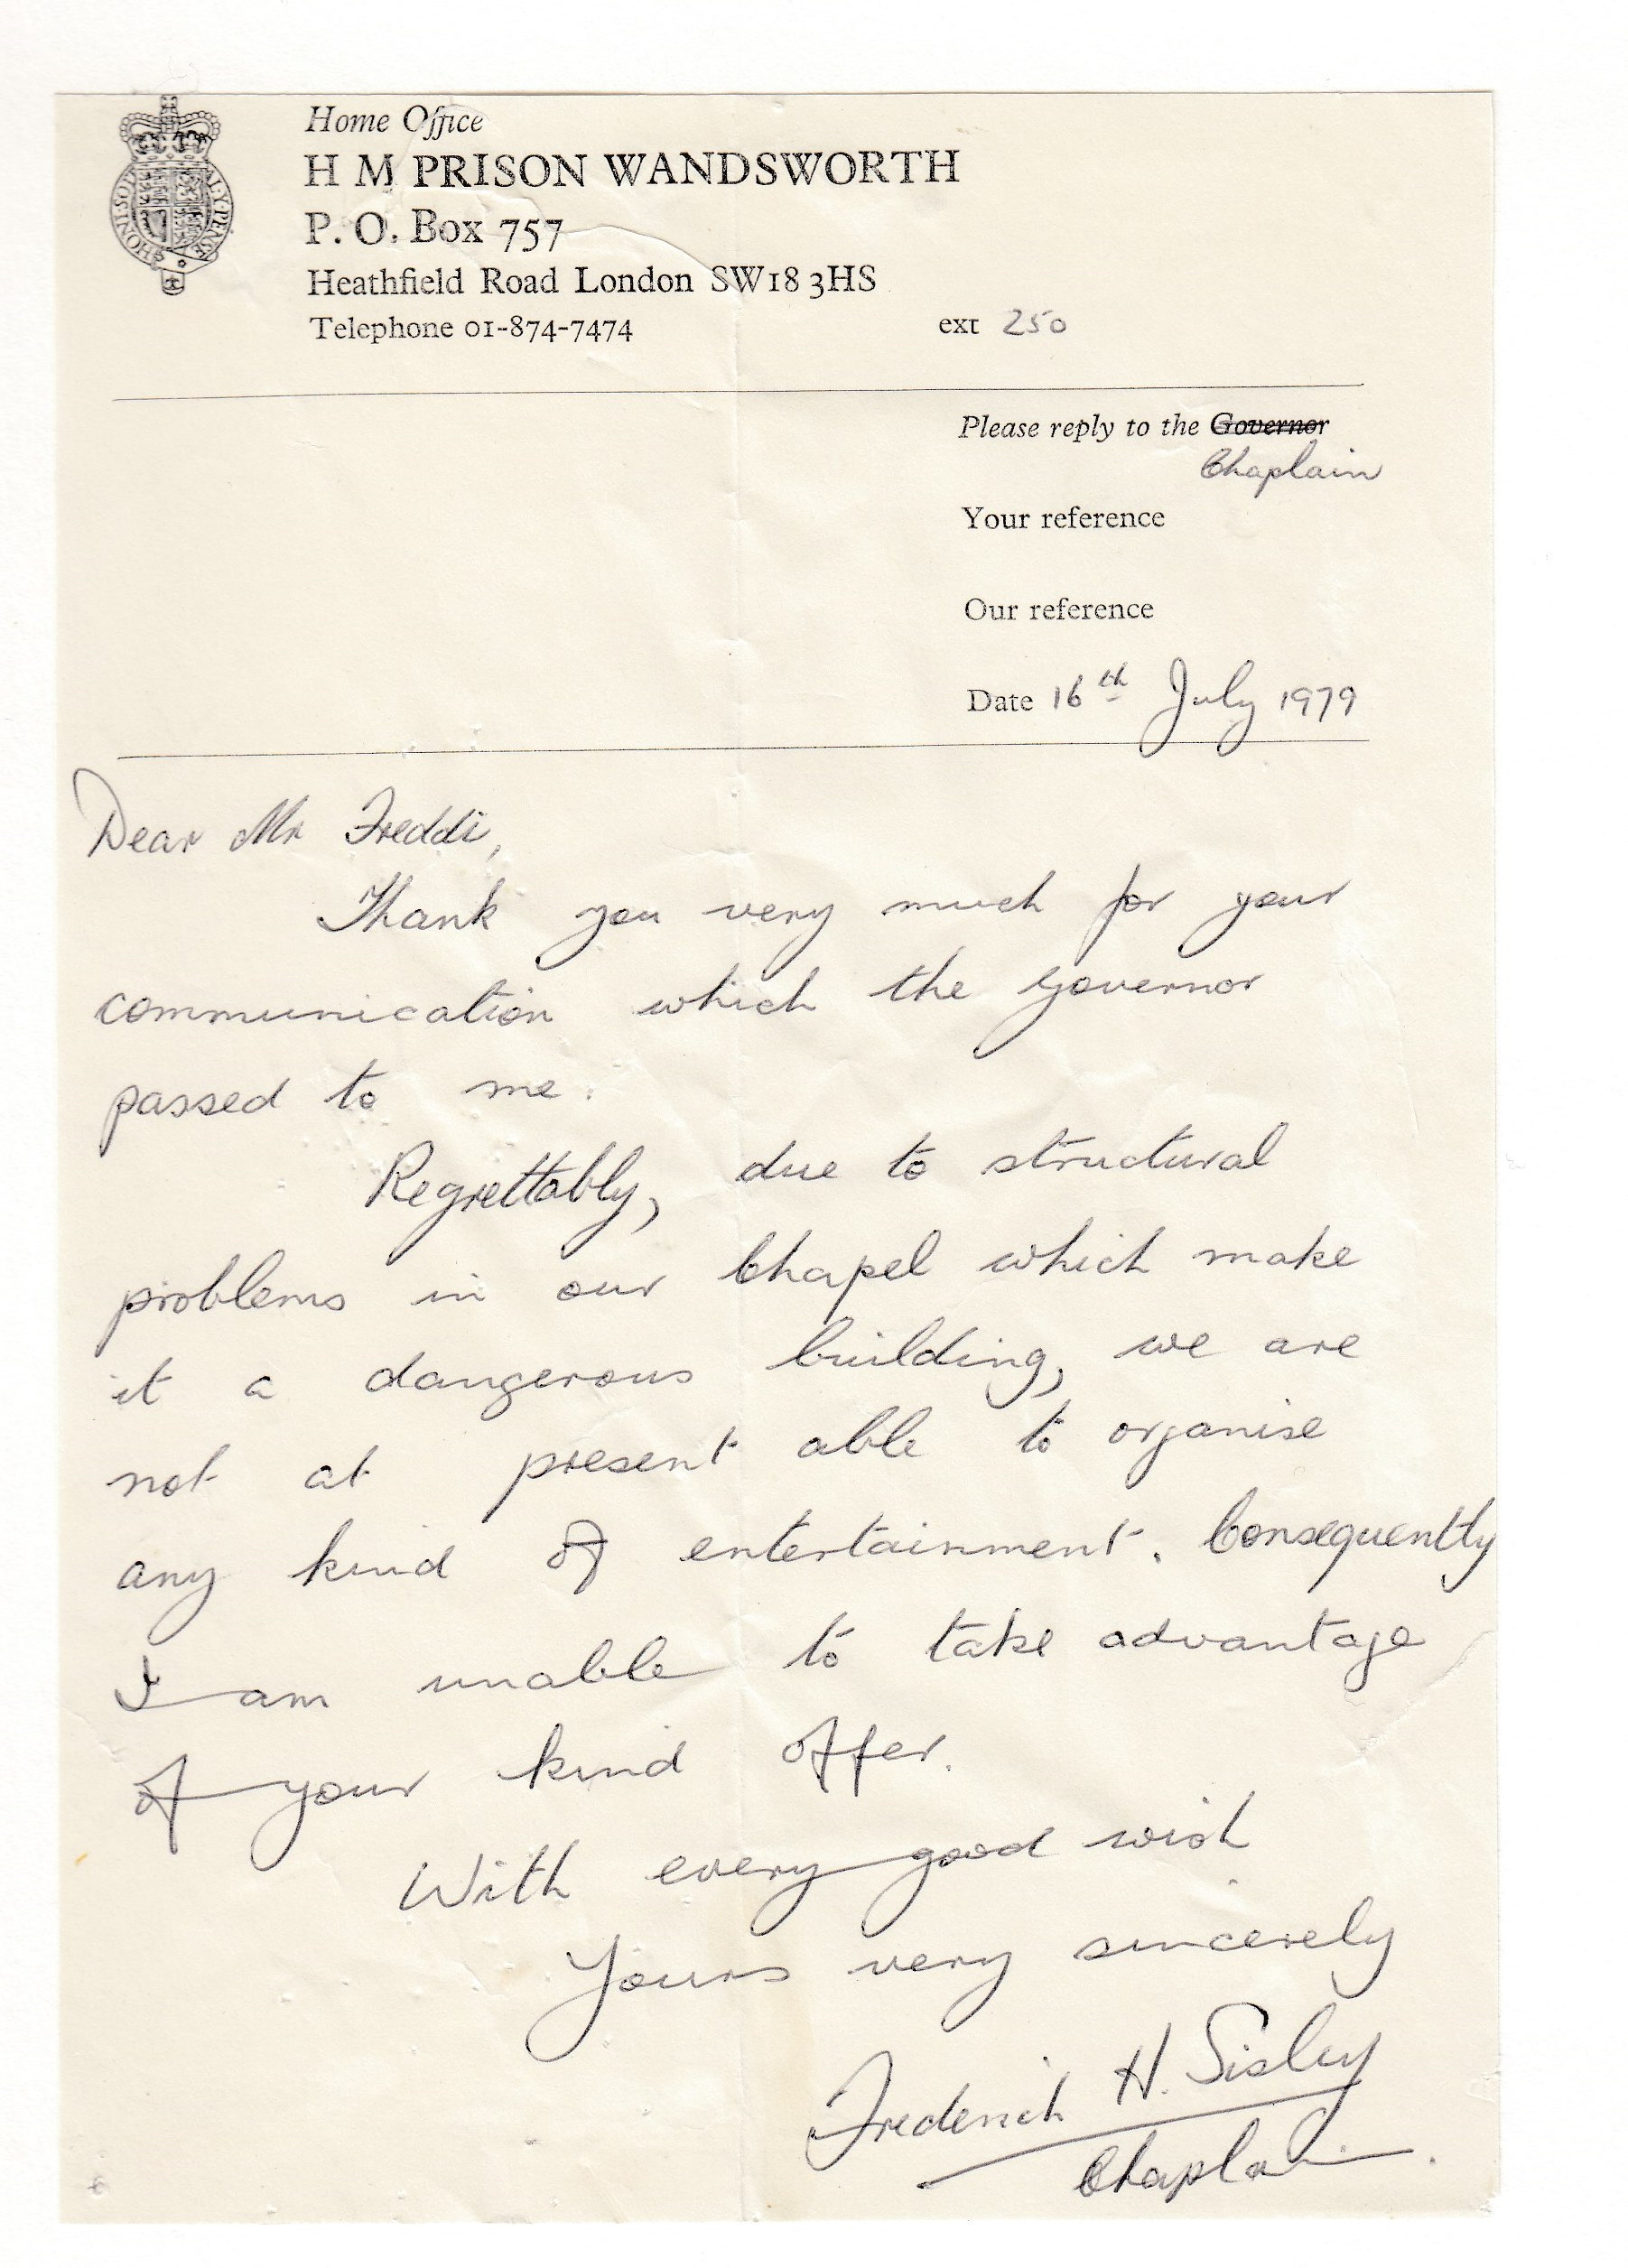 Home Office
H M PRISON WANDSWORTH
P. O. Box 757
Heathfield Road London SW18 3HS
Telephone 01-874-7474 ext 250
HONI SOI AL Y PENSE
Please reply to the Governor
Chaplain
Your reference
Our reference
Date 16th July 1979
Dear Mr Freddi,
Thank you very much for your
communication which the Governor
passed to me.
Regrettably, due to structural
problems in our Chapel which make
it a dangerous building, we are
not at present able to organise
any kind of entertainment. Consequently
I am unable to take advantage
of your kind offer.
With every good wish
Yours very sincerely
Frederick H. Sisley
Chaplain.